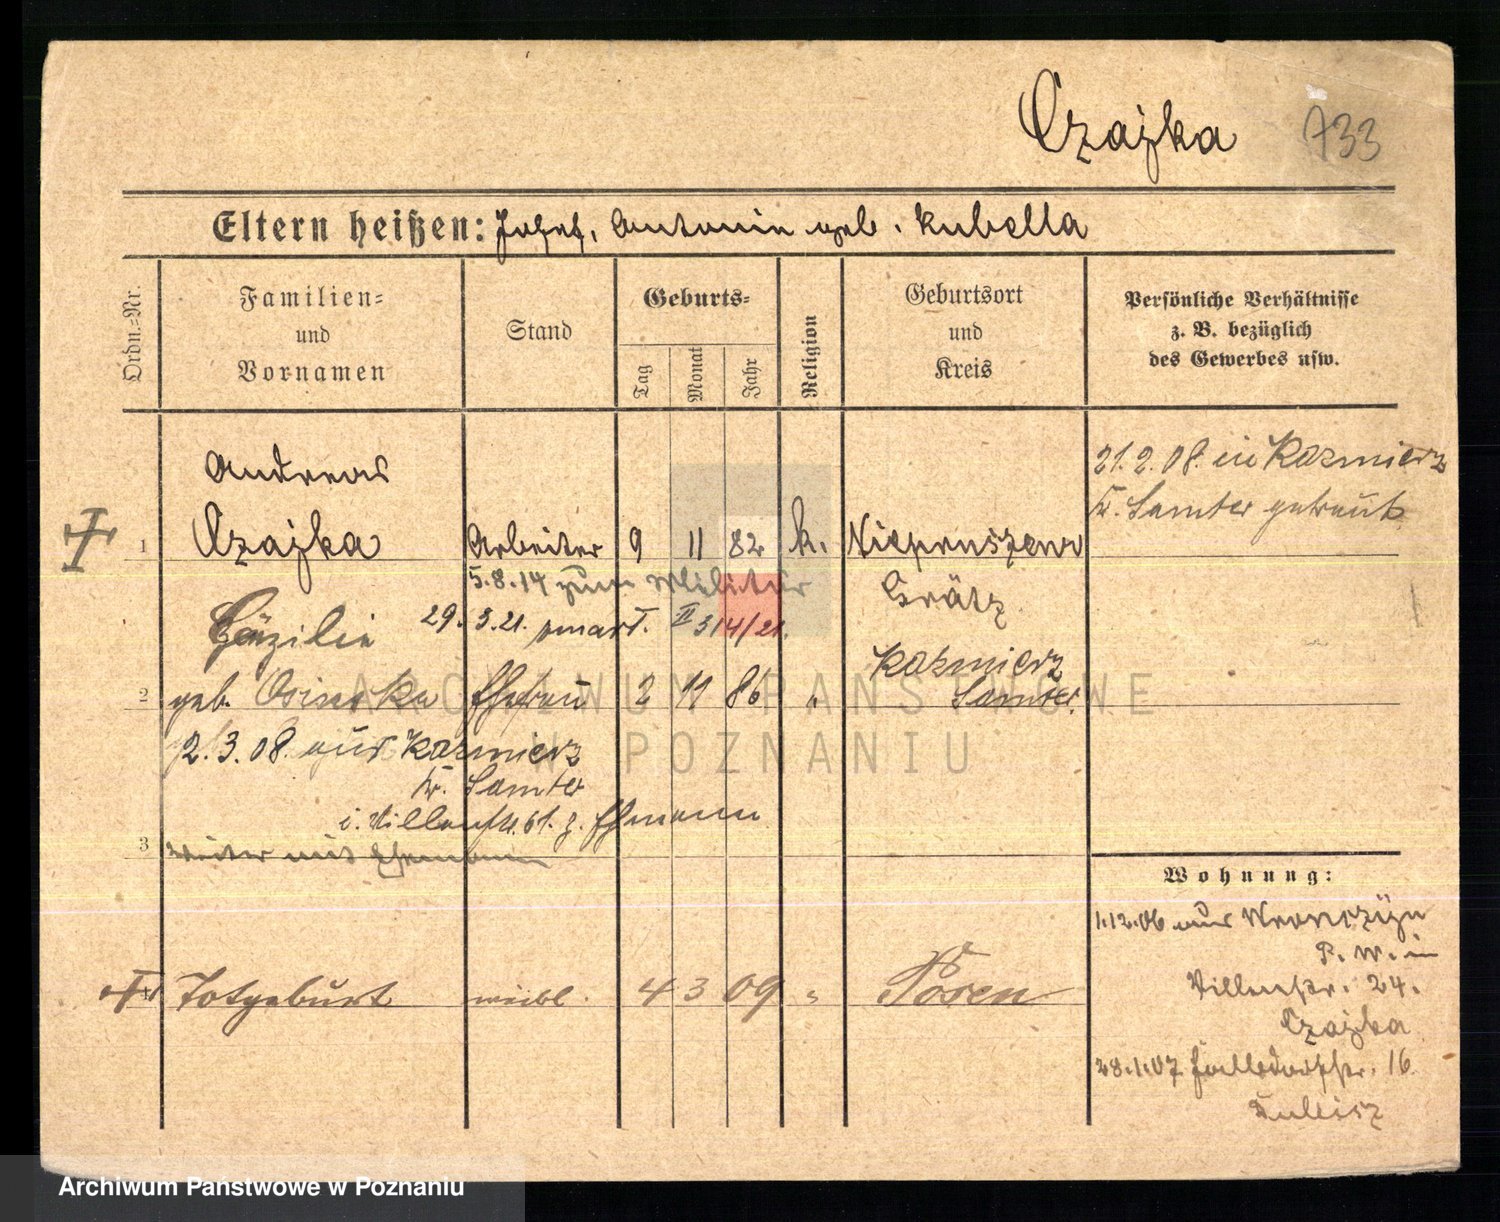 Czajka 733
Eltern heißen: Josef, Antonie geb. Kubella
Ordn.=Nr.
Familien=
und
Vornamen
Stand
Geburts=
Tag
Monat
Jahr
Religion
Geburtsort
und
Kreis
Persönliche Verhältnisse
z. B. bezüglich
des Gewerbes usw.
Andreas
1 Czajka Arbeiter 9 11 82 k. Niepruszewo
Grätz
21.2.08. in Kazmierz
Kr. Samter getraut
5.8.14 zum Militär
29.3.21.
Cäzilie
2 geb. Osinska Ehefrau 2 11 86 " Kazmierz
Samter
2.3.08. aus Kazmierz
Kr. Samter
z. Ehmann
3 weiter mit Ehemann
Totgeburt weibl. 4 3 09 " Posen
Wohnung:
1.12.06 aus
P. W. in
Villenstr. 24.
Czajka
28.1.07 16
ARCHIWUM PAŃSTWOWE
W POZNANIU
Archiwum Państwowe w Poznaniu